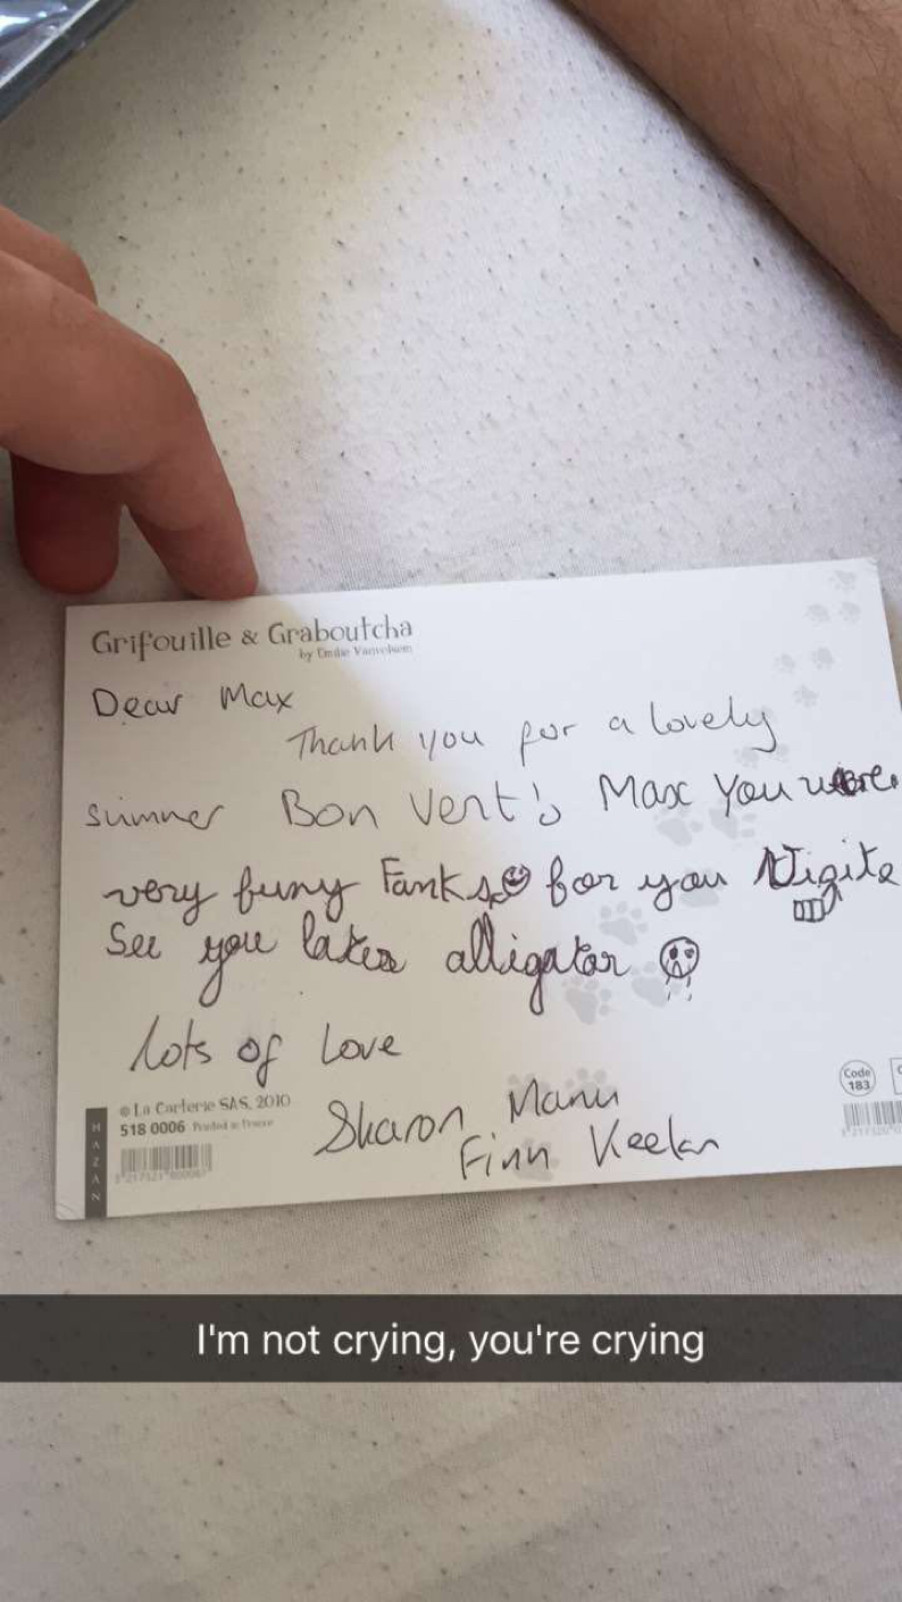 Grifouille & Graboutcha
by Emilie Vanvolsem
Dear Max
Thank you for a lovely
summer Bon Vent! Max You were
very funy Fanks for you
See you later alligator
lots of Love
Sharon Manu
Finn Keelan
© La Carterie SAS, 2010
518 0006 Printed in France
HAZAN
Code
183
I'm not crying, you're crying